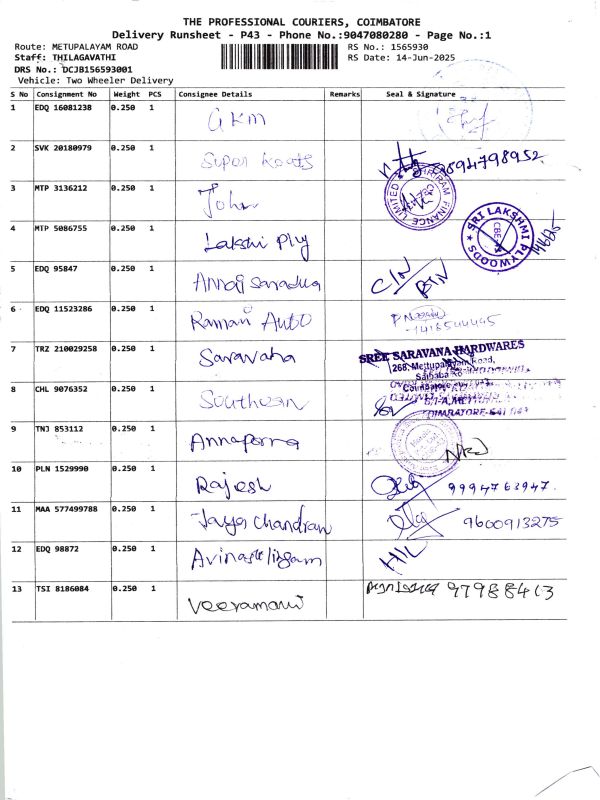 THE PROFESSIONAL COURIERS, COIMBATORE
Delivery Runsheet - P43 - Phone No.:9047080280 - Page No.:1
Route: METUPALAYAM ROAD
RS No.: 1565930
Staff: THILAGAVATHI
RS Date: 14-Jun-2025
DRS No.: DCJB156593001
Vehicle: Two Wheeler Delivery
S No Consignment No Weight PCS Consignee Details Remarks Seal & Signature
1 EDQ 16081238 0.250 1 GKM
2 SVK 20180979 0.250 1 Super 9894798952
3 MTP 3136212 0.250 1 John SHRIRAM FINANCE LIMITED
4 MTP 5086755 0.250 1 Lakshi Ply SRI LAKSHMI PLYWOODS CBE
5 EDQ 95847 0.250 1
6 EDQ 11523286 0.250 1 Raman Auto
7 TRZ 210029258 0.250 1 Saravana SREE SARAVANA HARDWARES
268, Mettupalayam Road,
Saibaba
8 CHL 9076352 0.250 1 Southern
COIMBATORE
9 TNJ 853112 0.250 1 Annaporna
10 PLN 1529990 0.250 1 Rajesh 9994763947
11 MAA 577499788 0.250 1 Jaya chandran 9600913275
12 EDQ 98872 0.250 1 Avinashlingam HIL
13 TSI 8186084 0.250 1 Veeramani